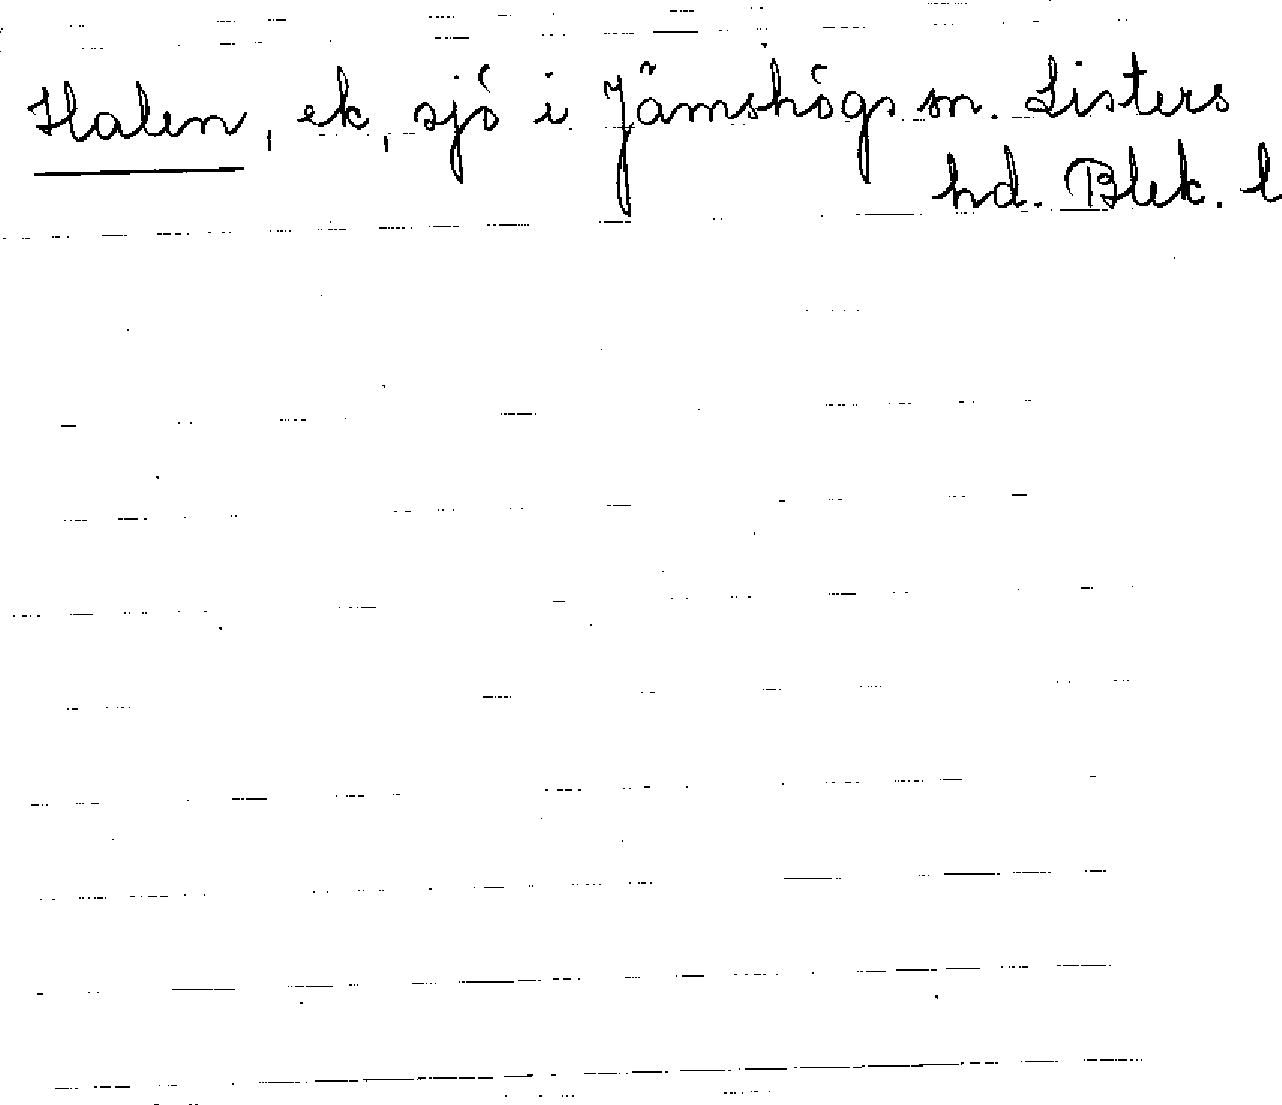 Halen, ek, sjö i Jämshögs sn. Listers
hd. Blek. l